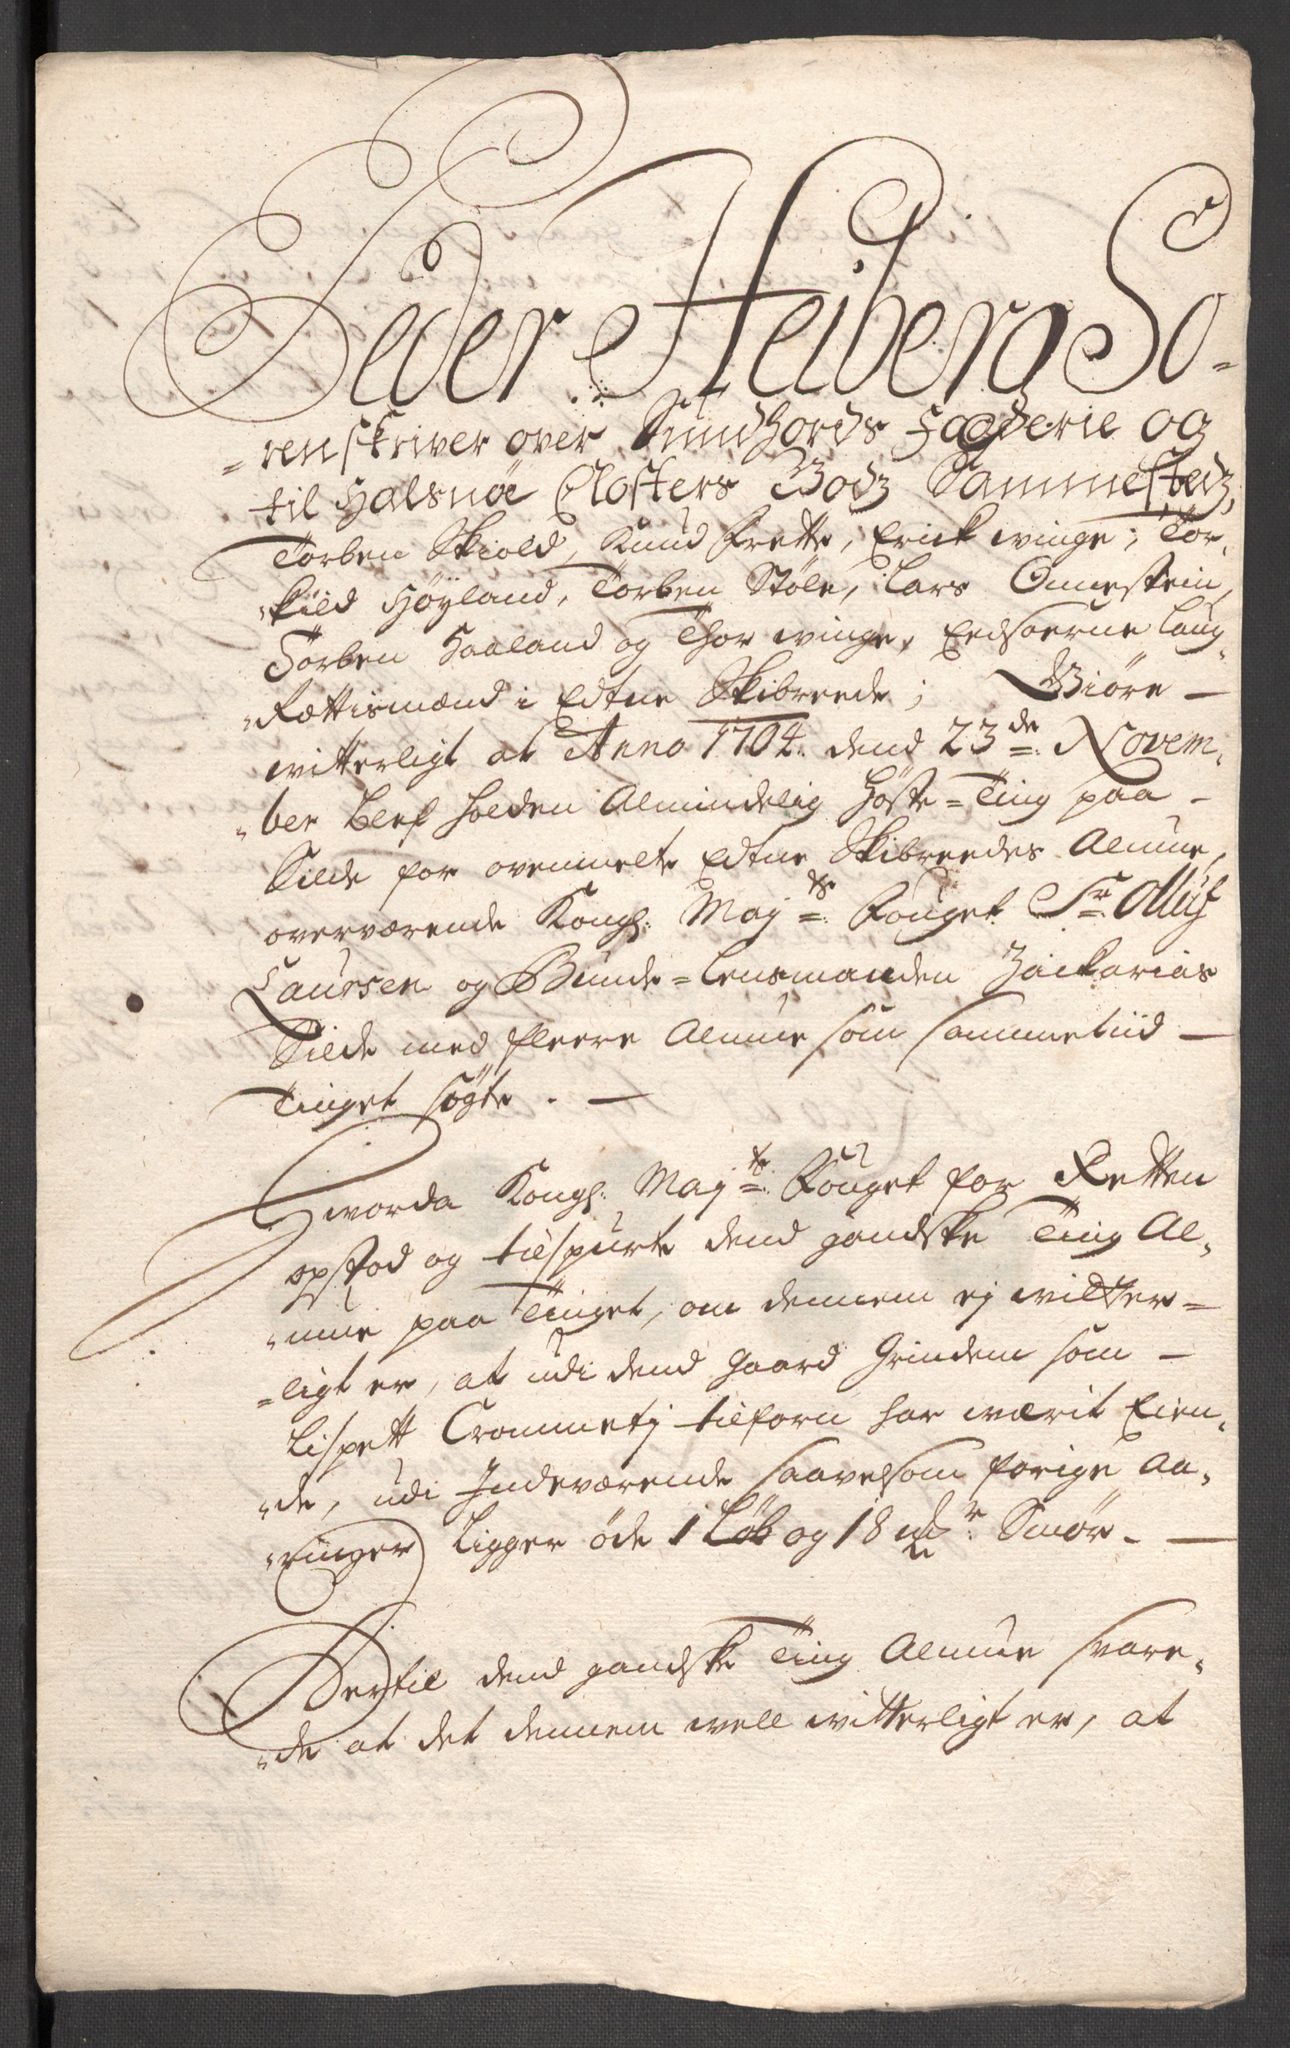 Peder Heiberg So-
-renskriver over Sundhords Fogderie og
til Halsnöe Closters Godz Sammestedz,
Torben Skiold, Knud Frette, Erick winge, Tor-
-kild Höyland, Torben Stöle, Lars Ommestein,
Torben Haaland og Thor winge, Eedsoerne Laug-
-Rettismænd i Edtne Skibreede; Giöre
witterligt at Anno 1704. dend 23de Novem-
-ber blef holden Almindelig Höste-Ting paa
Silde for ovenmelte Edtne Skibreedes Almue,
overværende Kongl: Maytz: Fouget Sr Oluf
Laursen og Bunde-Lensmanden Zackarias
Silde med fleere Almue som sammetiid
Tinget sögte.
Hvorda Kongl: Maytz: Fouget for Retten
opstod og tilspurte dend gandske Ting Al-
-mue paa Tinget, om dennem ej witter-
-ligt er, at udi dend gaard Grindem som
Lispett Crommetj tilforn har wærit Eien-
-de, udi Indeværende saavelsom forige Aa-
-ringer Ligger öde 1 Löb og 18 mkr: Smör.
Dertil dend gandske Ting Almue svare-
-de at det dennem well witterligt er, at